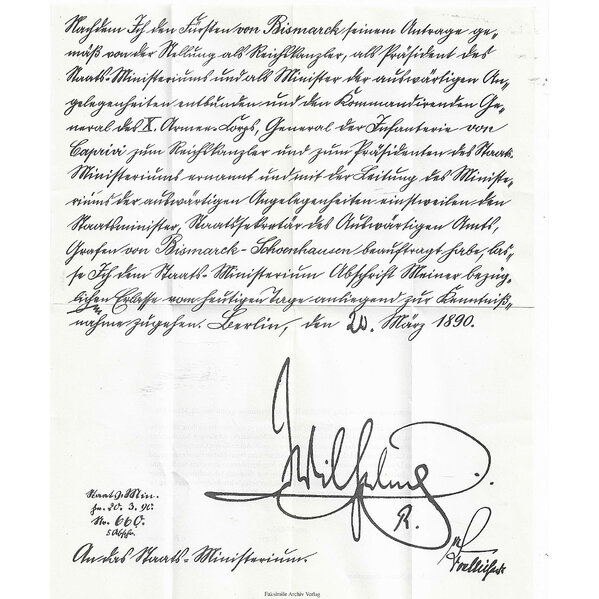 Nachdem Ich den Fürsten von Bismarck seinem Antrage ge-
mäß von der Stellung als Reichskanzler, als Präsident des
Staats-Ministeriums und als Minister der auswärtigen An-
gelegenheiten entbunden und den Kommandirenden Ge-
neral des X. Armee-Corps, General der Infanterie von
Caprivi zum Reichskanzler und zum Präsidenten des Staats-
Ministeriums ernannt und mit der Leitung des Ministe-
riums der auswärtigen Angelegenheiten einstweilen den
Staatsminister, Staatssekretär des Auswärtigen Amts,
Grafen von Bismarck-Schoenhausen beauftragt habe, las-
se Ich dem Staats-Ministerium Abschrift Meiner bezüg-
lichen Erlasse vom heutigen Tage anliegend zur Kenntniß-
nahme zugehen. Berlin, den 20. März 1890.
Wilhelm
R.
Staats-Min.
pr. 20. 3. 90.
No. 660.
5 Abschr.
An das Staats-Ministerium.
Faksimile Archiv Verlag